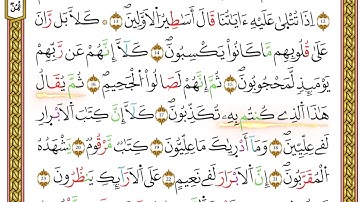 إِذَا تُتْلَىٰ عَلَيْهِ ءَايَٰتُنَا قَالَ أَسَٰطِيرُ الْأَوَّلِينَ ۖ 13 كَلَّا بَل رَّانَ
عَلَىٰ قُلُوبِهِم مَّا كَانُوا يَكْسِبُونَ ۖ 14 كَلَّا إِنَّهُمْ عَن رَّبِّهِمْ
يَوْمَئِذٍ لَّمَحْجُوبُونَ ۖ 15 ثُمَّ إِنَّهُمْ لَصَالُوا الْجَحِيمِ ۖ 16 ثُمَّ يُقَالُ
هَٰذَا الَّذِي كُنتُم بِهِۦ تُكَذِّبُونَ ۖ 17 كَلَّا إِنَّ كِتَٰبَ الْأَبْرَارِ
لَفِي عِلِّيِّينَ ۖ 18 وَمَا أَدْرَىٰكَ مَا عِلِّيُّونَ ۖ 19 كِتَٰبٌ مَّرْقُومٌ 20 يَشْهَدُهُ
الْمُقَرَّبُونَ ۖ 21 إِنَّ الْأَبْرَارَ لَفِي نَعِيمٍ 22 عَلَى الْأَرَآئِكِ يَنظُرُونَ 23